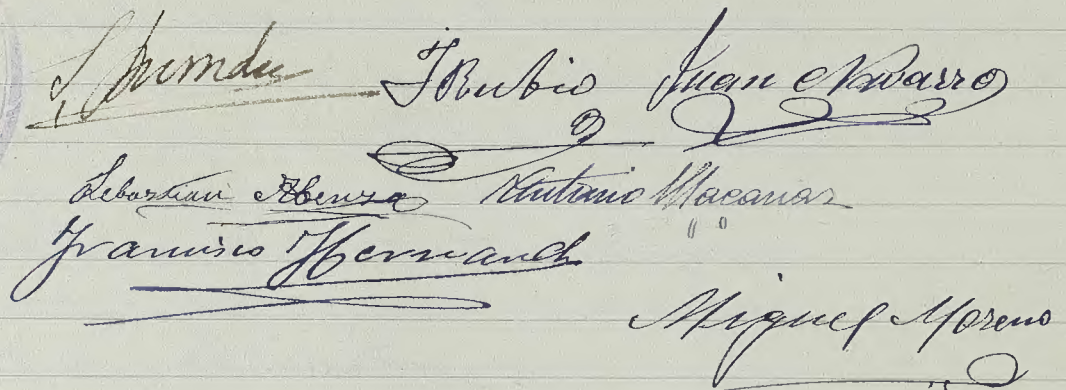 J Rubio Juan Navarro
Sebastian Abenza Antonio Macanas
Francisco Hernand
Miguel Moreno